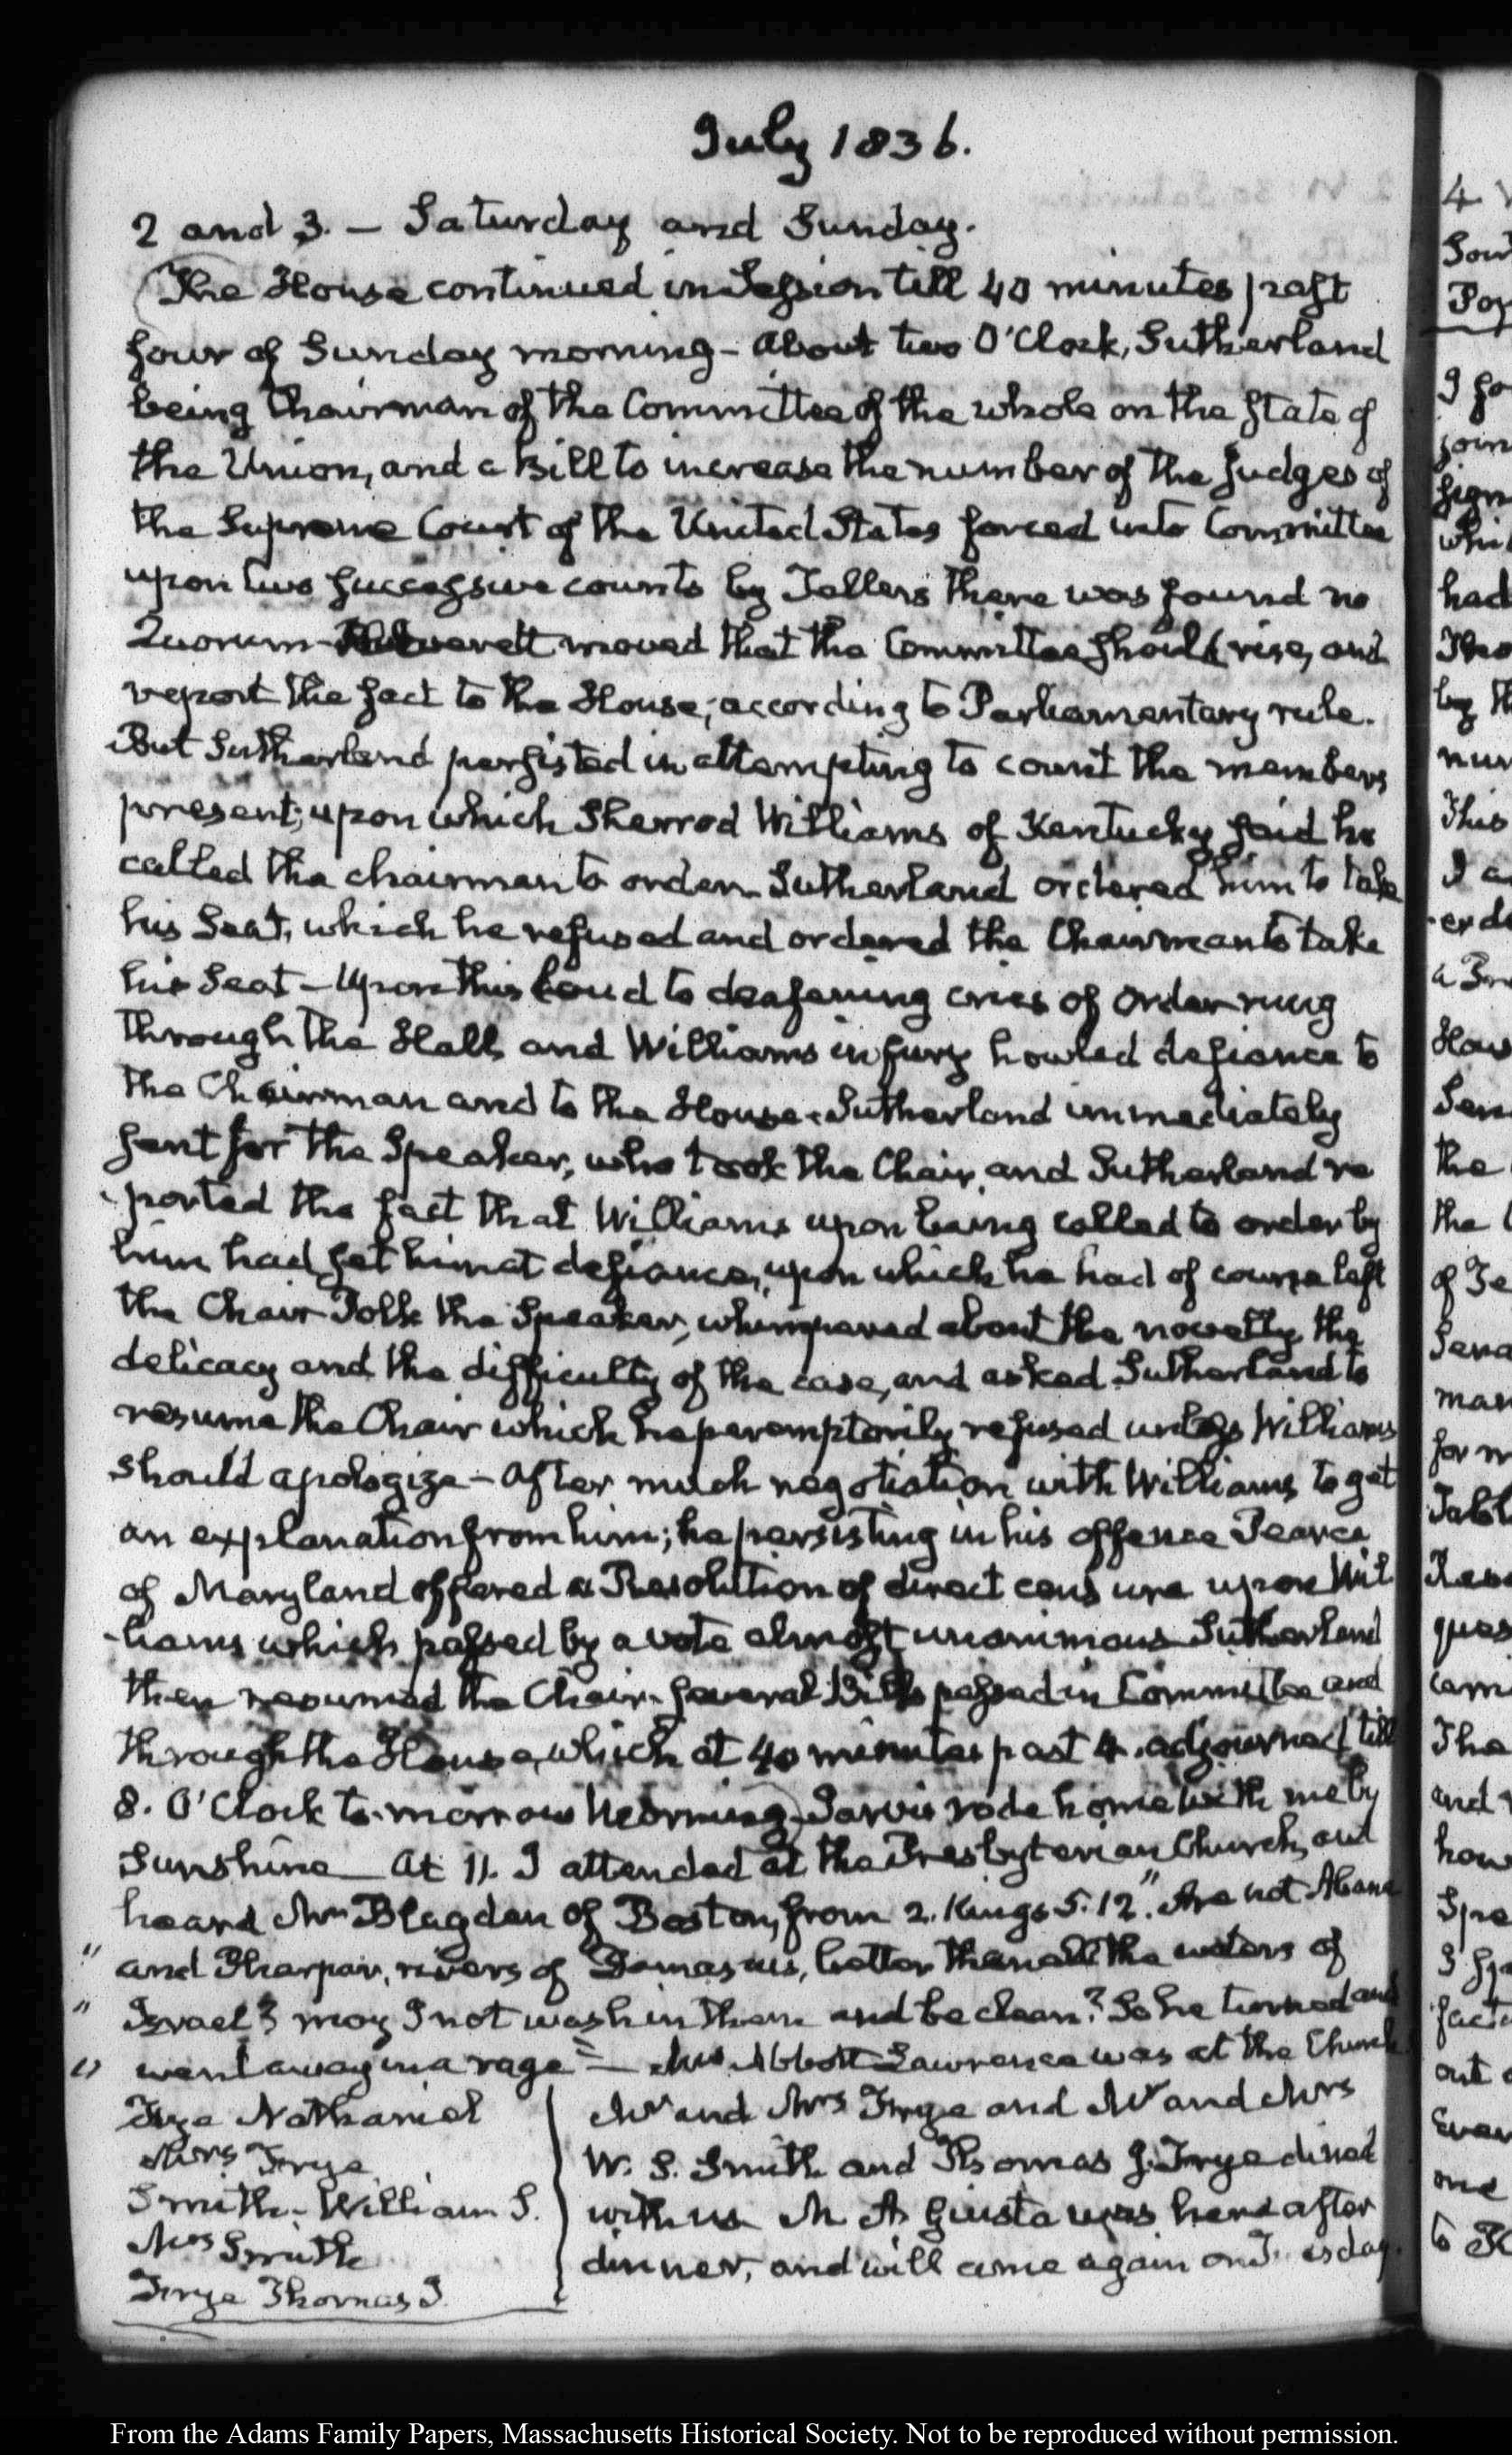 July 1836.
2 and 3. — Saturday and Sunday.
The House continued in Session till 40 minutes past
four of Sunday morning - About two O'Clock, Sutherland
being Chairman of the Committee of the whole on the State of
the Union, and a Bill to increase the number of the Judges of
the Supreme Court of the United States forced into Committee
upon two successive counts by Tellers there was found no
Quorum - moved that the Committee should rise, and
report the fact to the House, according to Parliamentary rule.
But Sutherland persisted in attempting to count the members
present; upon which Sherrod Williams of Kentucky said he
called the chairman to order. Sutherland ordered him to take
his Seat, which he refused and ordered the Chairman to take
his Seat — Upon this loud to deafening cries of order rung
through the Hall, and Williams in fury howled defiance to
the Chairman and to the House. Sutherland immediately
sent for the Speaker, who took the Chair, and Sutherland re
-ported the fact that Williams upon being called to order by
him had set him at defiance, upon which he had of course left
the Chair Polk the Speaker, whimpered about the novelty, the
delicacy and the difficulty of the case, and asked Sutherland to
resume the Chair which he peremptorily refused unless Williams
should apologize - After much negotiation with Williams to get
an explanation from him; he persisting in his offence Pearce
of Maryland offered a Resolution of direct censure upon Wil
-liams which passed by a vote almost unanimous Sutherland
then resumed the Chair. Several Bills passed in Committee and
through the House, which at 40 minutes past 4. adjourned till
8. O'Clock to-morrow Morning. Jarvis rode home with me by
Sunshine — At 11. I attended at the Presbyterian Church, and
heard Mr Blagden of Boston, from 2. Kings 5. 12. "Are not Abana
" and Pharpar, rivers of Damascus, better than all the waters of
" Israel? may I not wash in them and be clean? So he turned and
" went away in a rage" — Mrs Abbott Lawrence was at the Church
Frye Nathaniel
Mrs Frye
Smith - William S.
Mrs Smith
Frye Thomas J.
Mr and Mrs Frye and Mr and Mrs
W. S. Smith and Thomas J. Frye dined
with us M A Giusta was here after
dinner, and will come again on
4
had
by th
This
the
the
and
how
one
to
From the Adams Family Papers, Massachusetts Historical Society. Not to be reproduced without permission.